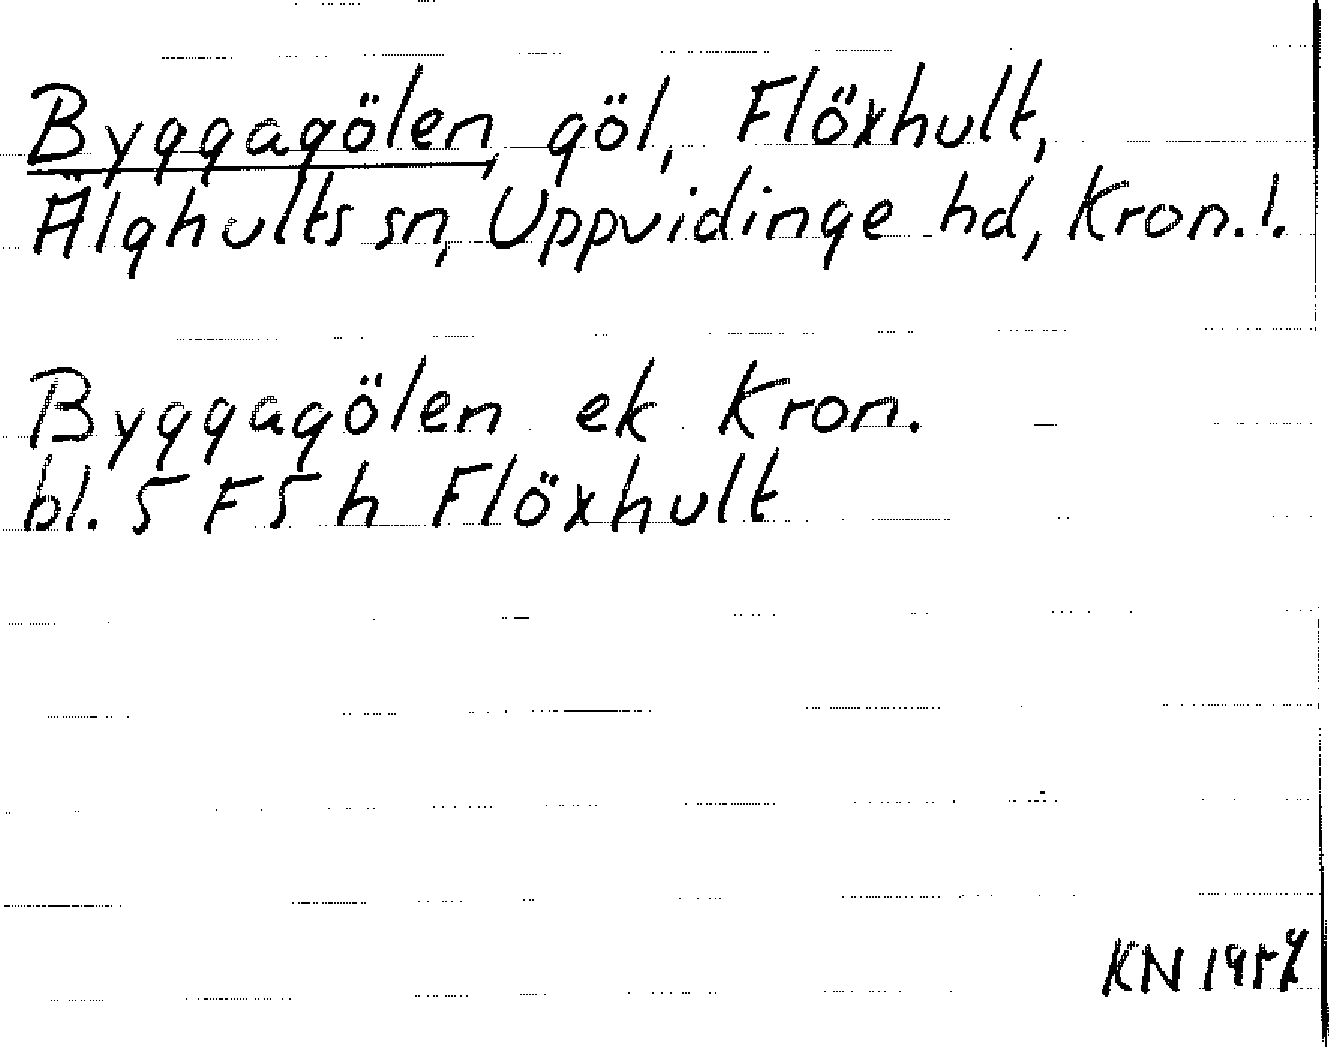 Byggagölen, göl, Flöxhult,
Älghults sn, Uppvidinge hd, Kron. l.
Byggagölen ek Kron.
bl. 5 F 5 h Flöxhult
KN